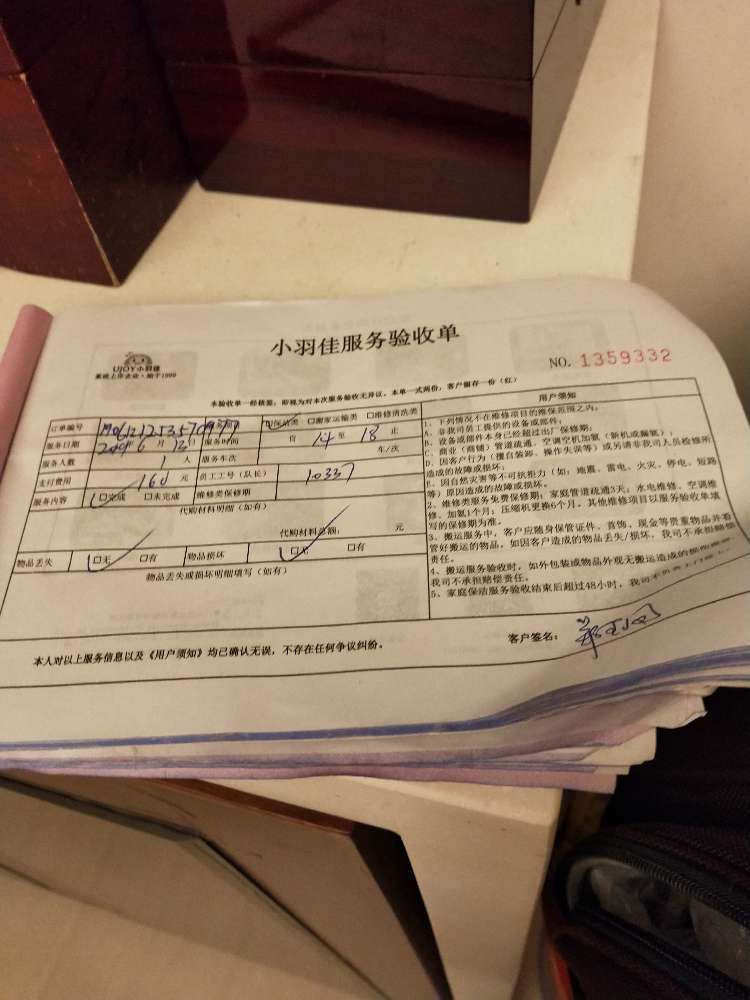 小羽佳服务验收单
UJOY小羽佳
系统上市企业·始于1999
NO. 1359332
本验收单一经核签，即视为对本次服务验收无异议。本单一式两份，客户留存一份（红）
订单编号
保洁类 □搬家运输类 □维修清洗类
服务日期 6 月 13 日 服务时间 自 14 至 18 止
服务人数 人 服务车次 车/次
支付费用 160 元 员工工号（队长） 10337
服务内容 □完成 □未完成 维修类保修期
代购材料明细（如有）
代购材料总额： 元
物品丢失 □无 □有 物品损坏 □无 □有
物品丢失或损坏明细填写（如有）
用户须知
1、下列情况不在维修项目的维保范围之内：
A、非我司员工提供的设备或部件；
B、设备或部件本身已经超过出厂保修期；
C、商业（商铺）管道疏通、空调空机加氨（新机或漏氨）；
D、因客户行为（擅自装卸、操作失误等）或另请非我司人员检修所
造成的故障或损坏；
E、因自然灾害等不可抗拒力（如：地震、雷电、火灾、停电、短路
等）原因造成的故障或损坏。
2、维修类服务免费保修期：家庭管道疏通3天；水电维修、空调维
修、加氨1个月；压缩机更换6个月。其他维修项目以服务验收单填
写的保修期为准。
3、搬运服务中，客户应随身保管证件、首饰、现金等贵重物品并看
管好搬运的物品，如因客户造成的物品丢失/损坏，我司不承担赔偿
责任。
4、搬运服务验收时，如外包装或物品外观无搬运造成的损
我司不承担赔偿责任。
5、家庭保动服务验收结束后超过48小时，我司不
本人对以上服务信息以及《用户须知》均已确认无误，不存在任何争议纠纷。
客户签名：